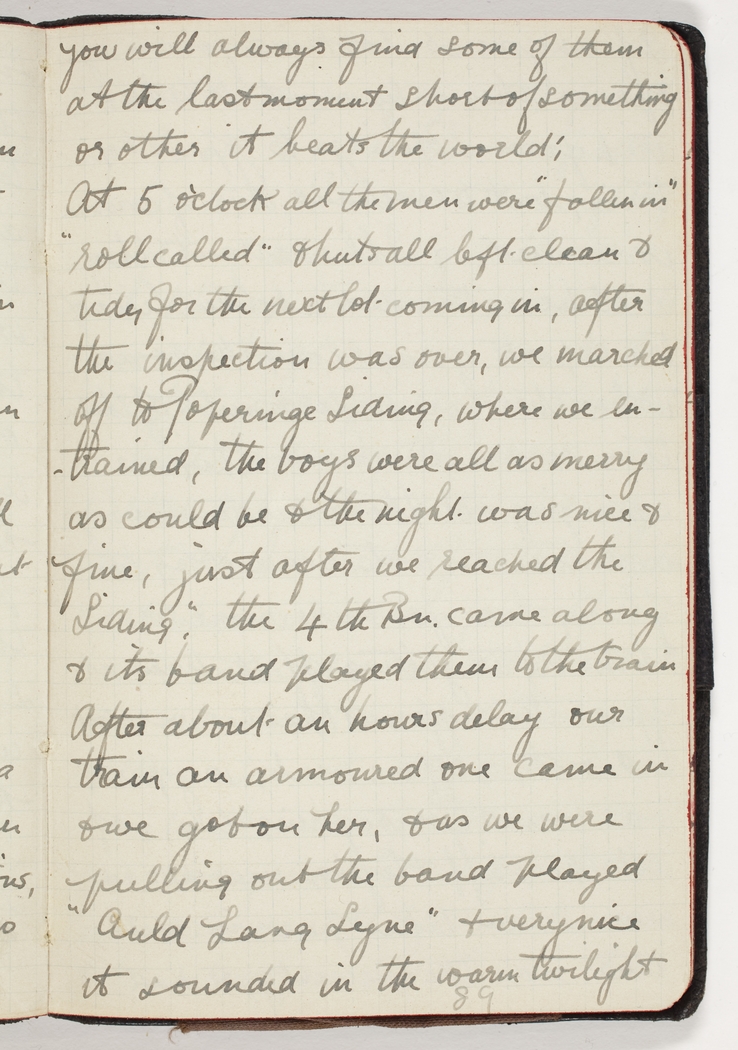 you will always find some of them
at the last moment short of something
or other it beats the world;
At 5 o'clock all the men were "fallen in"
"roll called" & huts all left clean &
tidy for the next lot coming in, after
the inspection was over, we marched
off to Poperinge Siding, where we en-
-trained, the boys were all as merry
as could be & the night was nice &
fine, just after we reached the
Siding", the 4th Bn. came along
& its band played them to the train
After about an hours delay our
train an armoured one came in
& we got on her, & as we were
pulling out the band played
"Auld Lang Syne" & very nice
it sounded in the warm twilight
89